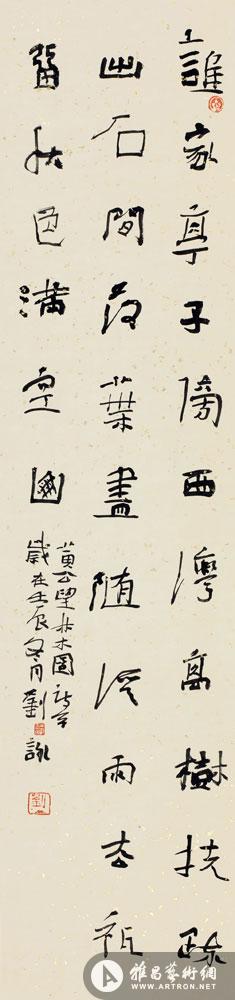 誰家亭子傍西灣高樹扶疏
出石間落葉盡随溪雨去祇
留秋色满空山
黄公望林木圖詩
歲在壬辰冬月劉詠
雅昌藝術網
WWW.ARTRON.NET